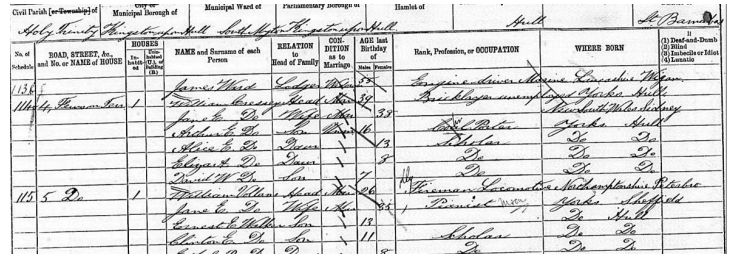 Civil Parish [or Township] of
City or
Municipal Borough of
Municipal Ward of
Parliamentary Borough of
Hamlet of
Holy Trinity Kingston upon Hull South Myton Kingston upon Hull Hull St Barnabas
No. of Schedule
ROAD, STREET, &c., and No. or NAME of HOUSE
HOUSES
In-habited
Uninhabited (U.), or Building (B.)
NAME and Surname of each Person
RELATION to Head of Family
CON-DITION as to Marriage
AGE last Birthday of
Males Females
Rank, Profession, or OCCUPATION
WHERE BORN
If
(1) Deaf-and-Dumb
(2) Blind
(3) Imbecile or Idiot
(4) Lunatic
113 James Ward Lodger 55 Engine driver Marine Lancashire Wigan
114 4, Terr 1 William Head Mar 39 Bricklayer unemployed Yorks Hull
Jane E. Do Wife Mar 38 New South Wales Sidney
Arthur E. Do Son 16 Porter Yorks Hull
Alice E. Do Daur 13 Scholar Do Do
Eliza A. Do Daur 8 Do Do Do
David W. Do Son 7 Do Do Do
115 5 Do 1 William Head Mar 26 Fireman Locomotive Northamptonshire Peterbro
Jane E. Do Wife Mar 35 Pianist Yorks Sheffield
Ernest E. Walker Son 13 Do Hull
Clinton E. Do Son 11 Scholar Do Do
Do 8 Do Do Do